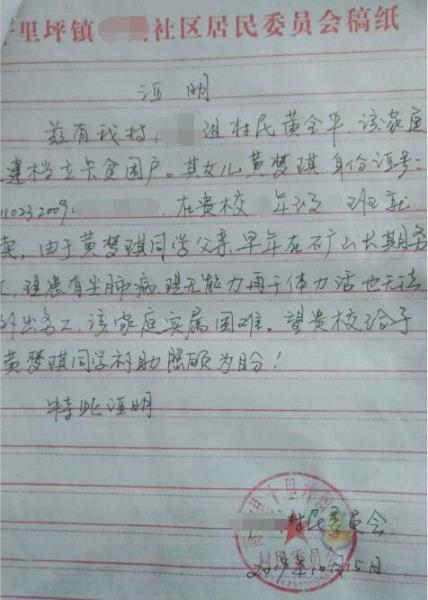 里坪镇 社区居民委员会稿纸
证明
兹有我村 组村民黄全平,该家庭
建档立卡贫困户。其女儿黄梦琪身份证号:
11023 2009 在贵校 年级 班就
卖,由于黄梦琪同学父亲早年在石矿山长期务
工,现患有尘肺病,现无能力再干体力活也无法
外出务工,该家庭实属困难。望贵校给予
黄梦琪同学补助照顾为盼!
特此证明
村民委员会
2019年10月15日
十里坪
村民委员会